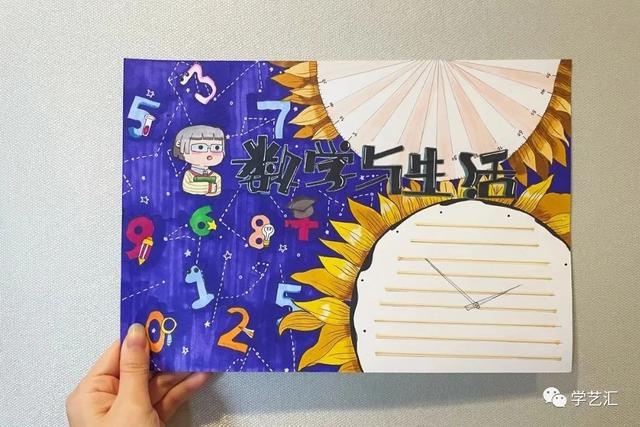 3
5
7
数学与生活
9
6
8
1
5
0
2
学艺汇